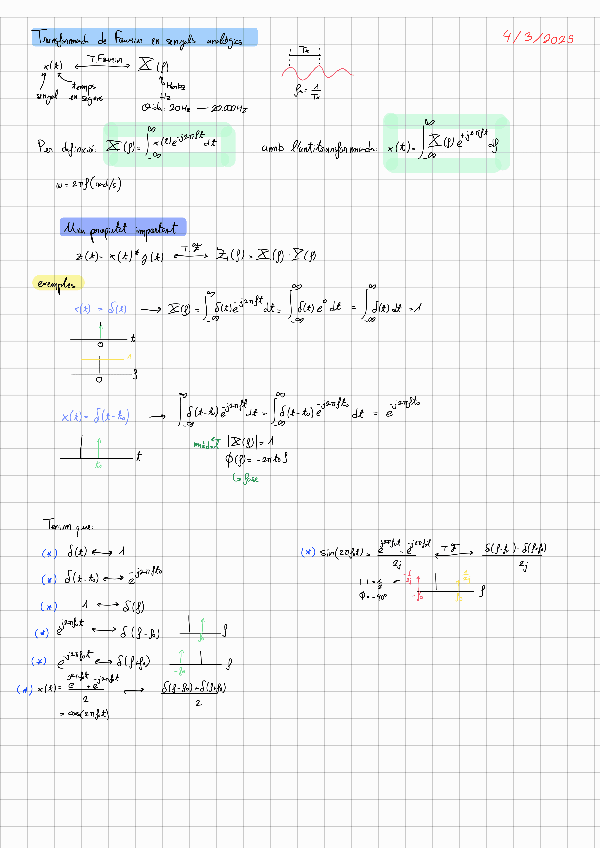 4/3/2025
Transformada de Fourier en senyals analògics
x(t) ⟷ T. Fourier X(f)
senyal temps en segons Hertz Hz
Oïda: 20Hz — 20.000Hz
T₀
f₀ = 1/T₀
Per definició: X(f) = ∫_{-∞}^{∞} x(t) e^{-j2πft} dt amb l'antitransformada: x(t) = ∫_{-∞}^{∞} X(f) e^{+j2πft} df
ω = 2πf (rad/s)
Una propietat important
z(t) = x(t) * y(t) ⟷ T.F. Z(f) = X(f) · Y(f)
exemples
x(t) = δ(t) → X(f) = ∫_{-∞}^{∞} δ(t) e^{-j2πft} dt = ∫_{-∞}^{∞} δ(t) e^0 dt = ∫_{-∞}^{∞} δ(t) dt = 1
0 t
1
0 f
x(t) = δ(t-t₀) → ∫_{-∞}^{∞} δ(t-t₀) e^{-j2πft} dt = ∫_{-∞}^{∞} δ(t-t₀) e^{-j2πft₀} dt = e^{-j2πft₀}
mòdul |X(f)| = 1
t₀ t
Φ(f) = -2πt₀f
↳ fase
Tenim que:
(*) δ(t) ⟷ 1
(*) δ(t-t₀) ⟷ e^{-j2πft₀}
(*) 1 ⟷ δ(f)
(*) e^{j2πf₀t} ⟷ δ(f-f₀) f₀ f
(*) e^{-j2πf₀t} ⟷ δ(f+f₀) -f₀ f
(*) x(t) = (e^{j2πf₀t} + e^{-j2πf₀t})/2 ⟶ (δ(f-f₀) + δ(f+f₀))/2
= cos(2πf₀t)
(*) sin(2πf₀t) = (e^{j2πf₀t} - e^{-j2πf₀t})/2j ⟷ T.F. (δ(f-f₀) - δ(f+f₀))/2j
| | = 1/2
Φ = -90°
-f₀ f₀ f